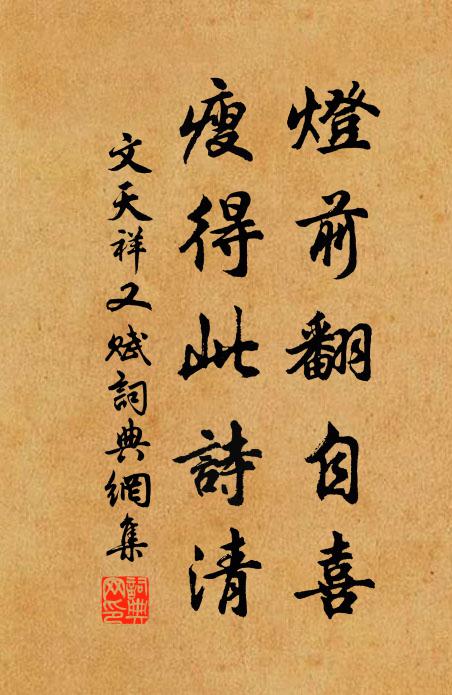 燈前翻自喜
瘦得此詩清
文天祥又賦詞典網集
詞典
网印